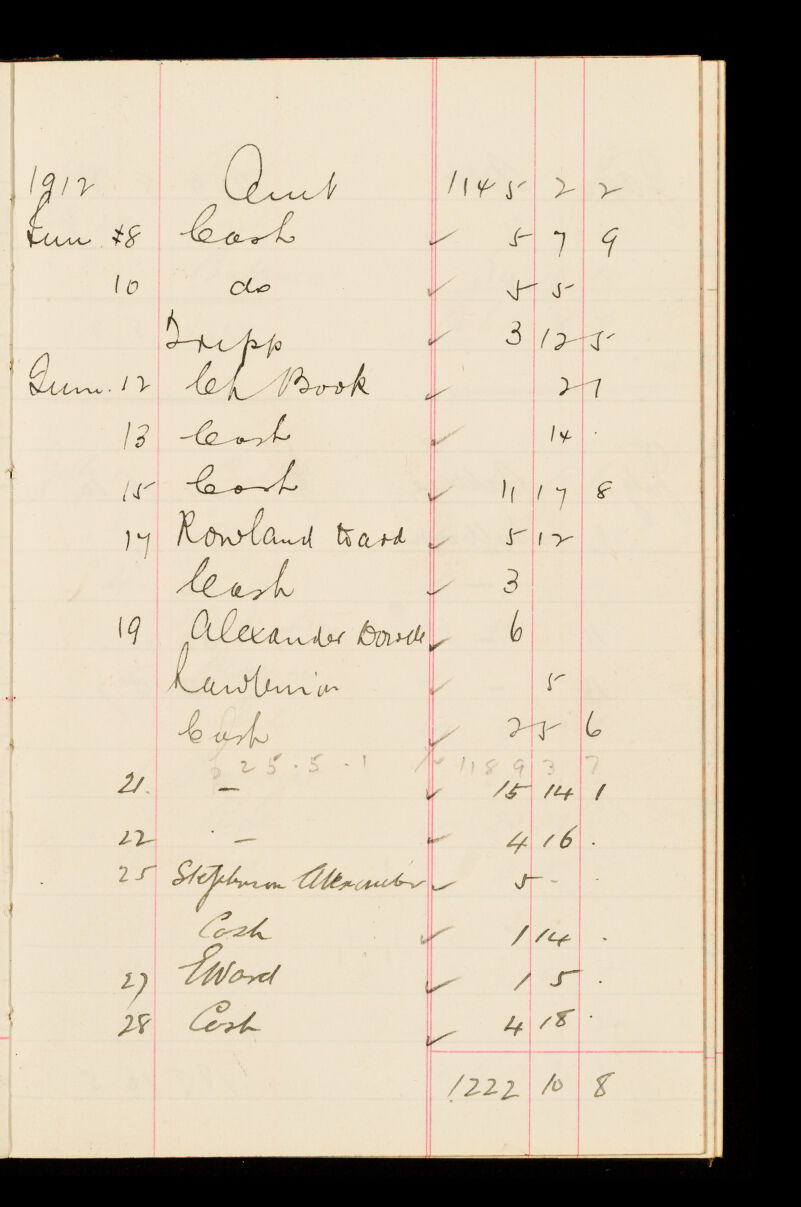 1912 Amt 1145 2 2
June 8 Cash ✓ 5 7 9
10 do ✓ 5 5
Tripp ✓ 3 12 5
June. 12 Ch Book ✓ 2 1
13 Cash ✓ 14 .
15 Cash ✓ 11 17 8
17 Rowland Ward ✓ 5 12
Cash ✓ 3
19 Alexander ✓ 6
✓ 5
Cash ✓ 2 5 6
25 . 5 . 1 ✓ 1189 3 7
21. — ✓ 15 14 1
22 — ✓ 4 16 .
25 Stephenson Alexander ✓ 5 - .
Cash ✓ 1 14 .
27 EWard ✓ 1 5 .
28 Cash ✓ 4 18 .
1222 10 8